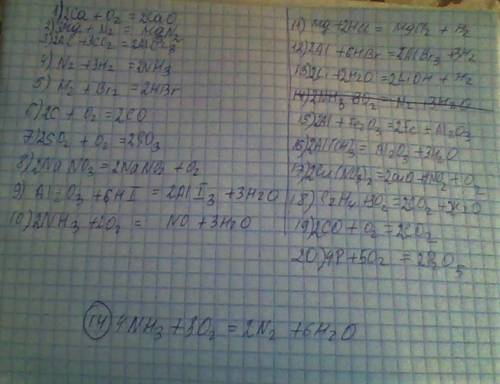 1) 2Ca + O₂ = 2CaO
2) 3Mg + N₂ = Mg₃N₂
3) 2Al + 3Cl₂ = 2AlCl₃
4) N₂ + 3H₂ = 2NH₃
5) H₂ + Br₂ = 2HBr
6) 2C + O₂ = 2CO
7) 2SO₂ + O₂ = 2SO₃
8) 2NaNO₃ = 2NaNO₂ + O₂
9) Al₂O₃ + 6HI = 2AlI₃ + 3H₂O
10) 2NH₃ + O₂ = NO + 3H₂O
11) Mg + 2HCl = MgCl₂ + H₂
12) 2Al + 6HBr = 2AlBr₃ + 3H₂
13) 2Li + 2H₂O = 2LiOH + H₂
14) 2NH₃ 3O₂ = N₂ 3H₂O
15) 2Al + Fe₂O₃ = 2Fe + Al₂O₃
16) 2Al(OH)₃ = Al₂O₃ + 3H₂O
17) 2Cu(NO₃)₂ = 2CuO + 4NO₂ + O₂
18) C₂H₄ + 3O₂ = 2CO₂ + 2H₂O
19) 2CO + O₂ = 2CO₂
20) 4P + 5O₂ = 2P₂O₅
14 4NH₃ + 3O₂ = 2N₂ + 6H₂O